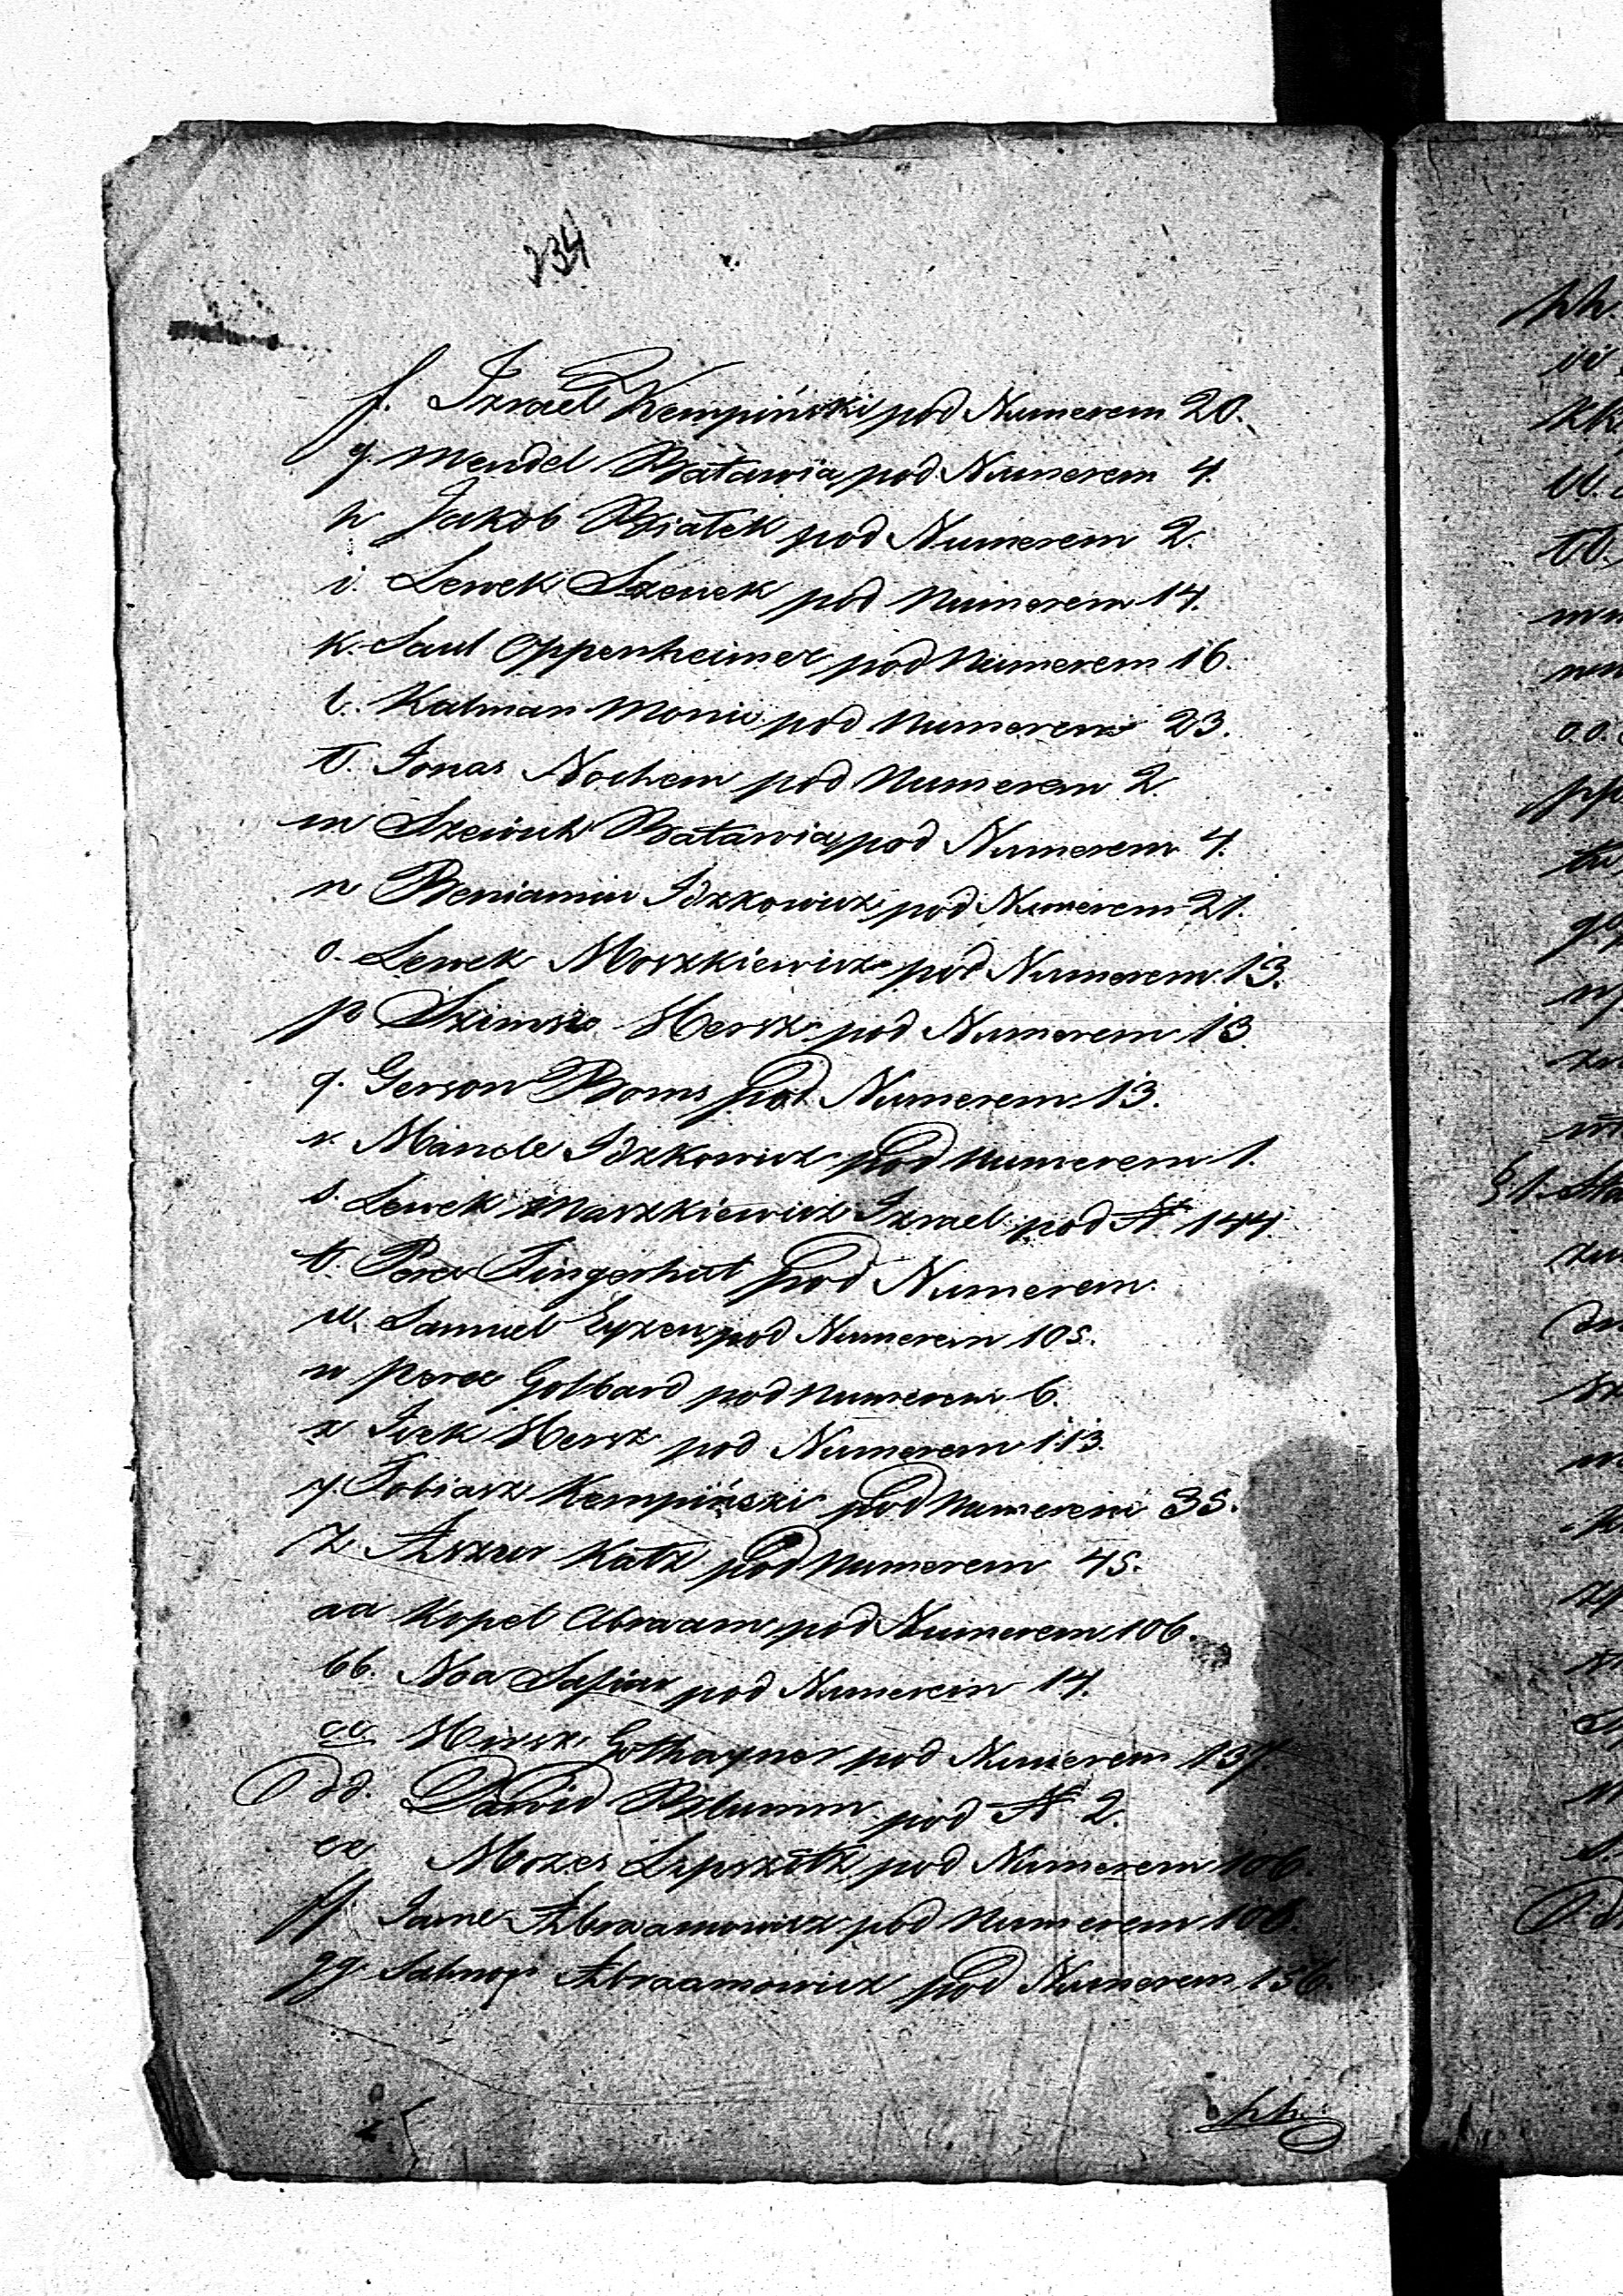 234
f. Izrael Kempiński pod Numerem 20.
g. Mendel Batawia pod Numerem 4.
h Jakob Białek pod Numerem 2.
i. Lewek Szenek pod Numerem 14.
k. Saul Oppenheimer pod Numerem 16.
l. Kalman Monie pod Numerem 23.
ł. Jonas Nochem pod Numerem 2.
m Batawia pod Numerem 4.
n Beniamin Idzkowicz pod Numerem 21.
o. Lewek Moszkiewicz pod Numerem 13.
p Szimsze Hersz pod Numerem 13
q. Gerson Boms pod Numerem 13.
r. Mancle Idzkowicz pod Numerem 1.
s. Lewek Maszkiewicz Izrael pod Nr 144.
t. Perec Fingerhut pod Numerem.
u. Samuel Eyzen pod Numerem 105.
w Perec Golbard pod Numerem 6.
x Icek Hersz pod Numerem 113.
y. Tobiasz Kempiński pod Numerem 35.
z Aszur Katz pod Numerem 45.
aa Kopel Abraam pod Numerem 106.
bb. Noa Safiar pod Numerem 14.
cc Hirsz Gothayner pod Numerem 137.
dd. Dawid Blumm pod Nr 2.
ee Mozes Lipszytz pod Numerem 106.
ff Abraamowicz pod Numerem 106.
gg. Abraamowicz pod Numerem 156.
hh.